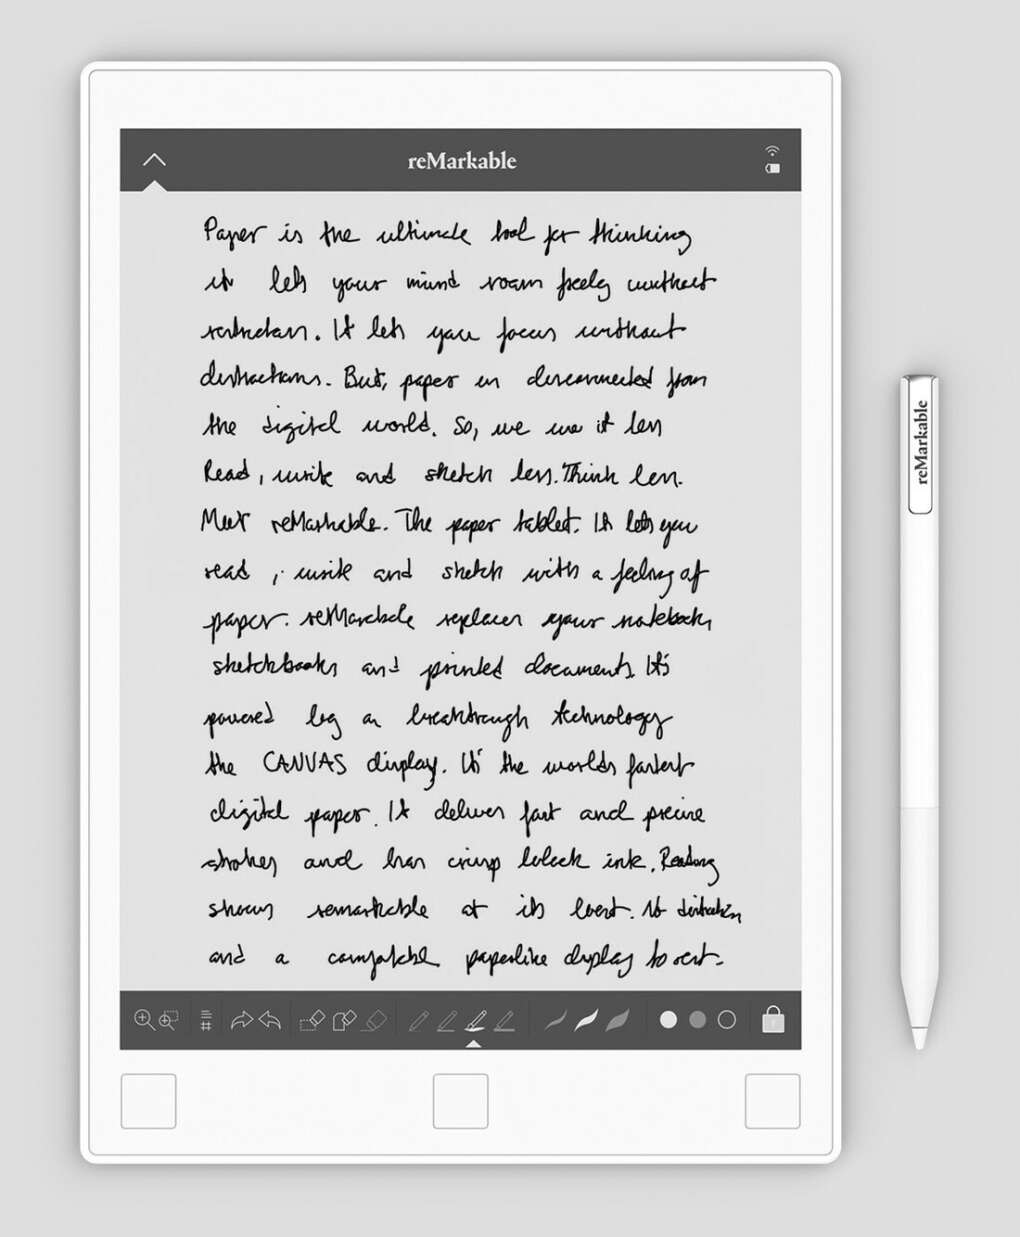 reMarkable
Paper is the ultimate tool for thinking
it lets your mind roam freely without
restriction. It lets you focus without
distractions. But, paper is disconnected from
the digital world. So, we use it less
Read, write and sketch less. Think less.
Meet reMarkable. The paper tablet. It lets you
read, write and sketch with a feeling of
paper. reMarkable replaces your notebooks,
sketchbooks and printed documents. It's
powered by a breakthrough technology
the CANVAS display. It's the worlds fastest
digital paper. It delivers fast and precise
strokes and has crisp black ink. Reading
shows remarkable at its best. No distraction
and a comfortable paperlike display to rest.
reMarkable